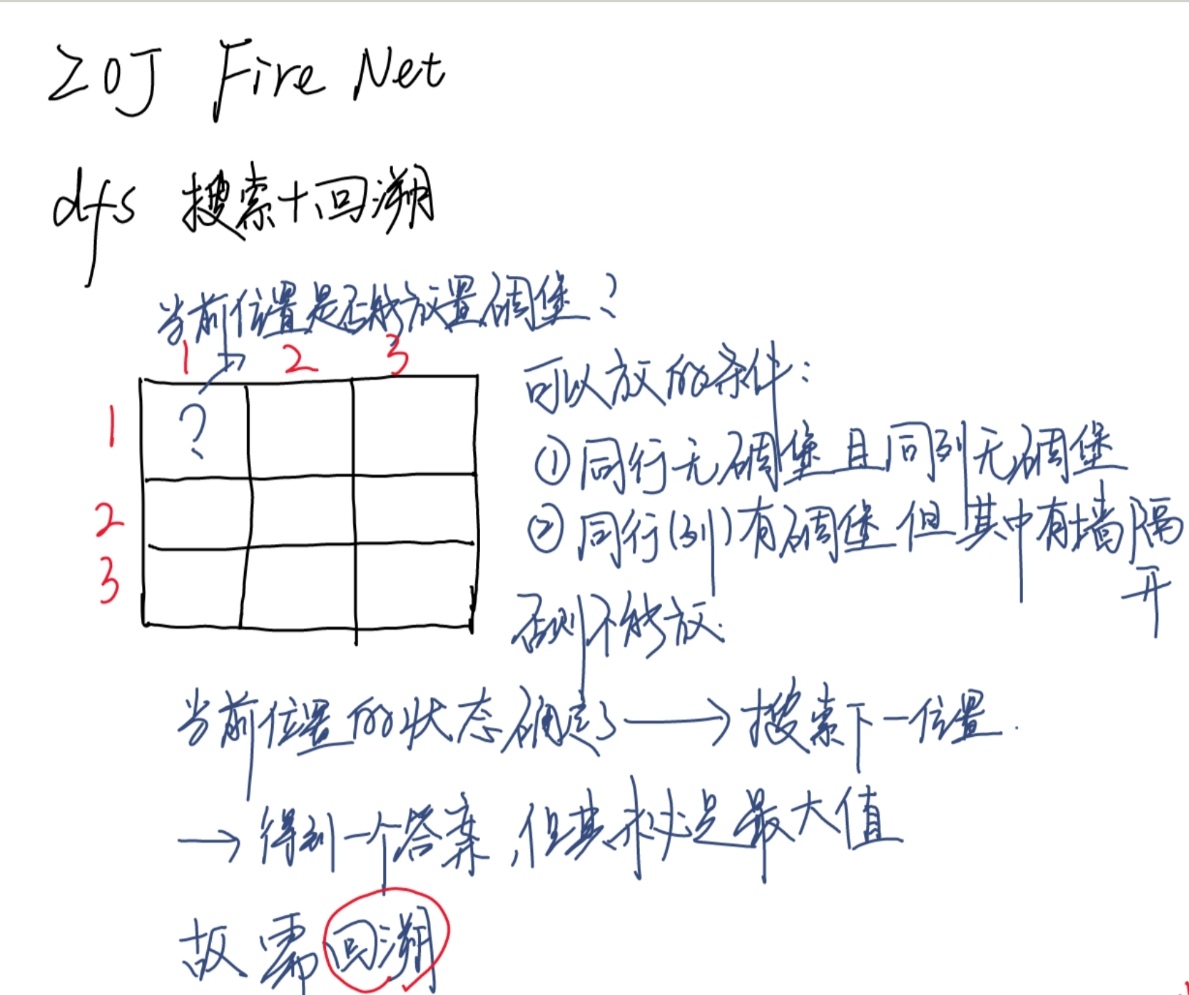 ZOJ Fire Net
dfs 搜索+回溯
当前位置是否能放置碉堡?
1 2 3
1 ?
2
3
可以放的条件:
①同行无碉堡且同列无碉堡
②同行(列)有碉堡但其中有墙隔
开
否则不能放.
当前位置的状态确定了 → 搜索下一位置.
→ 得到一个答案,但其未必是最大值
故需回溯